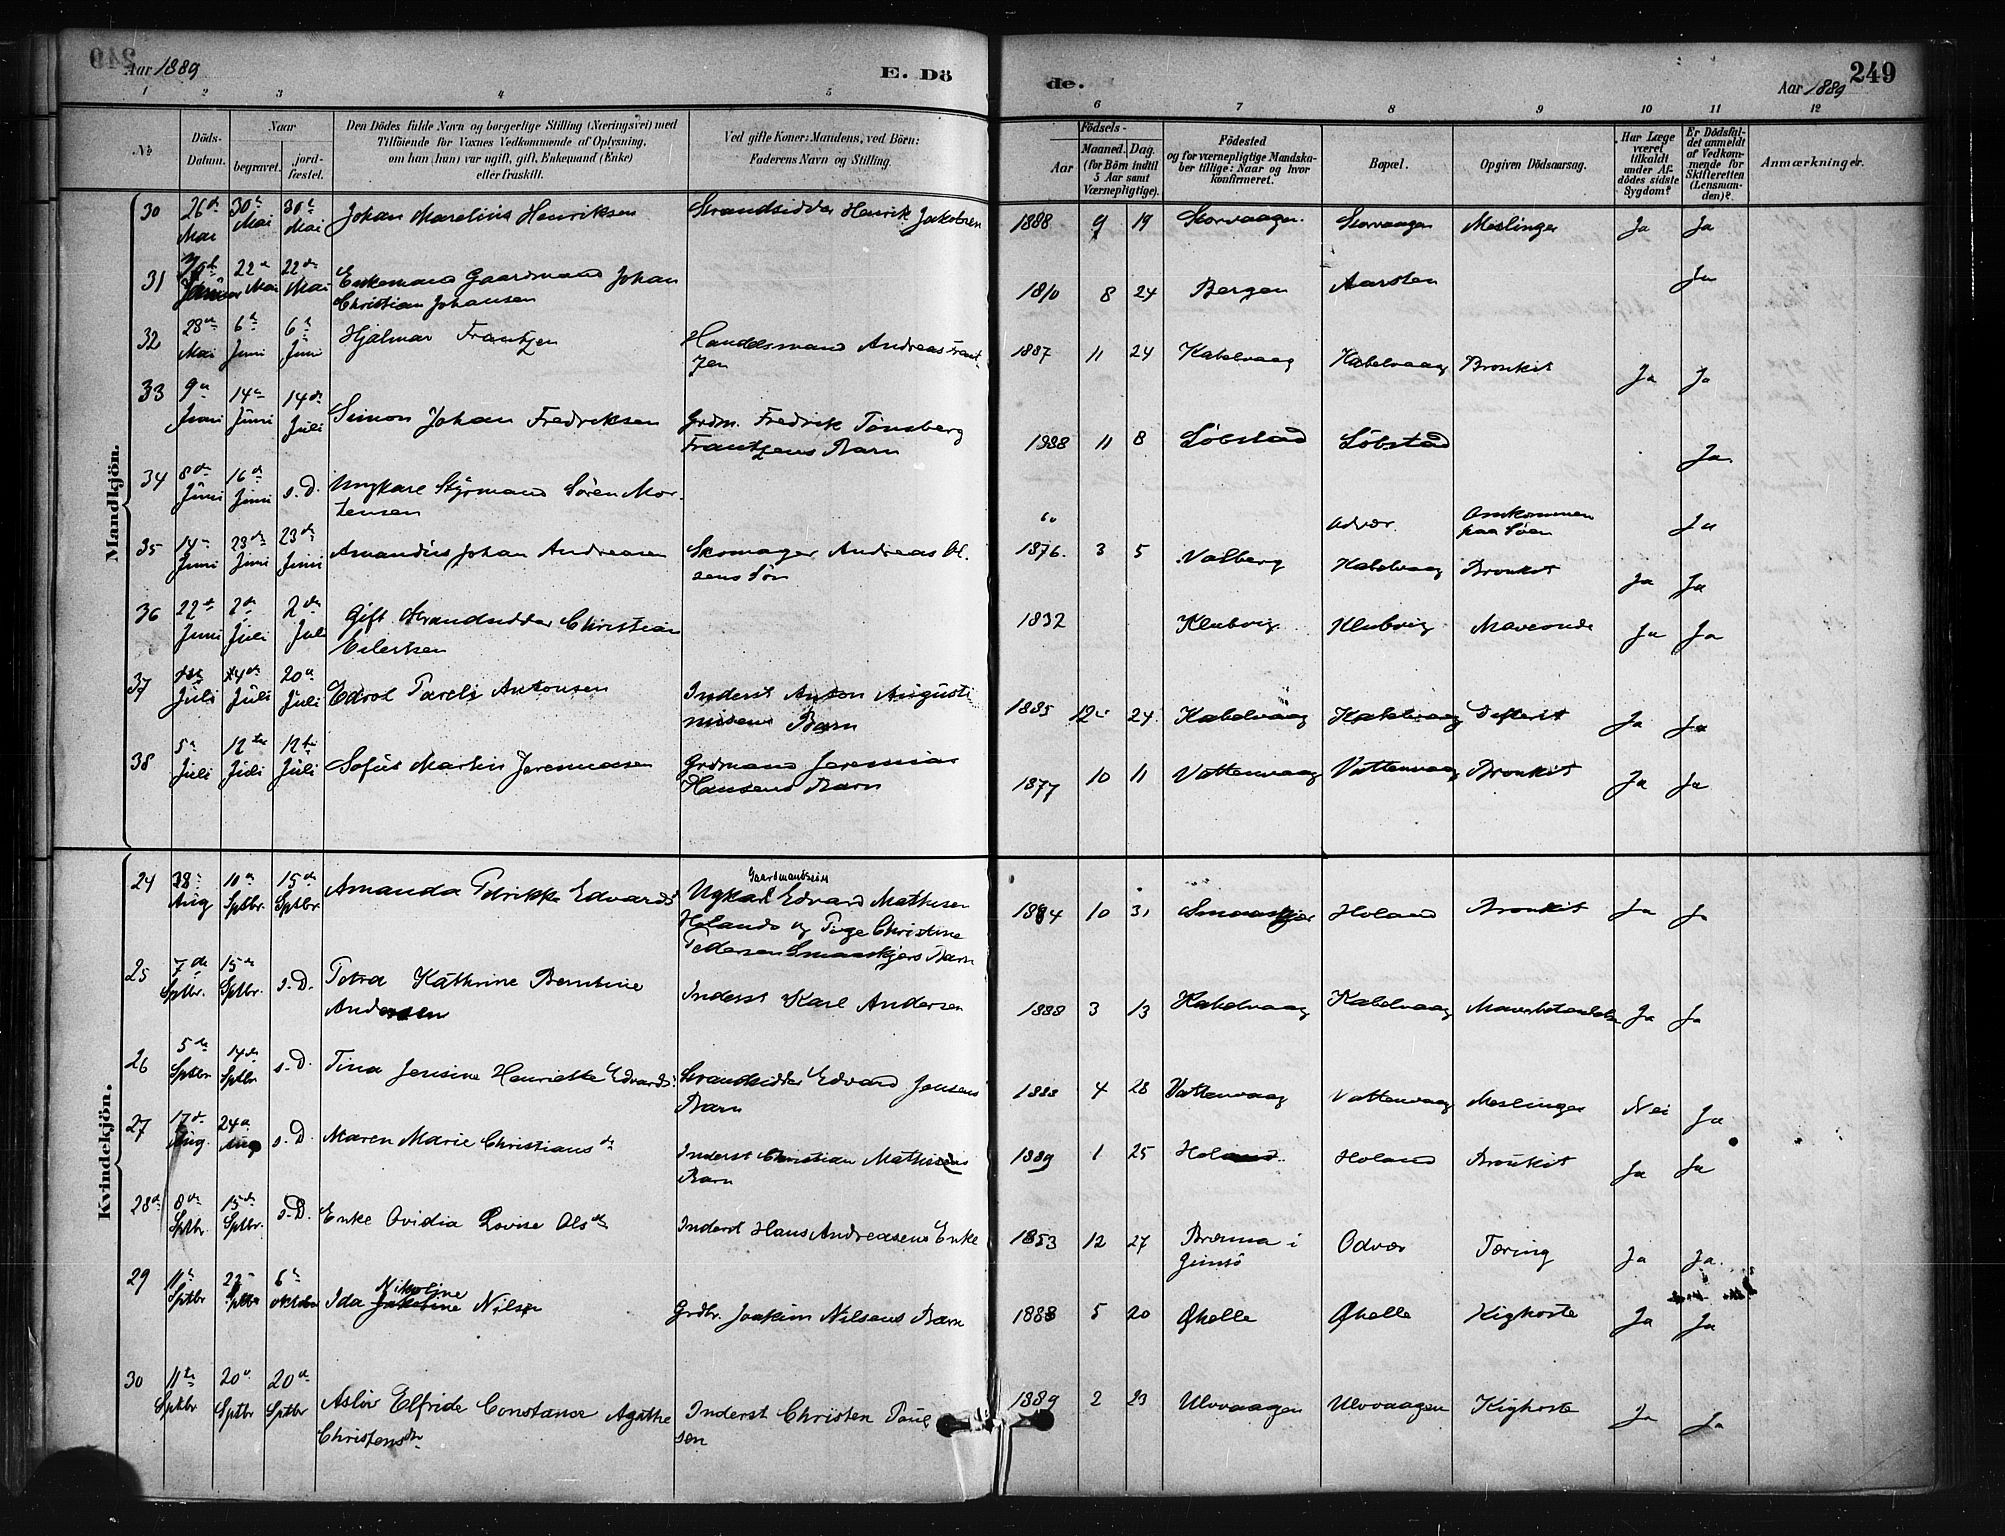 Aar 1889
E. Dö
de.
Aar 1889
249
1 2 3 4 5 6 7 8 9 10 11 12
No
Döds-
Datum.
Naar
begravet.
jord-
fæstet.
Den Dödes fulde Navn og borgerlige Stilling (Næringsvei) med
Tilföiende for Voxnes Vedkommende af Oplysning,
om han (hun) var ugift, gift, Enkemand (Enke)
eller fraskilt.
Ved gifte Koner: Mandens, ved Börn:
Faderens Navn og Stilling.
Födsels-
Aar
Maaned. Dag.
(for Börn indtil
5 Aar samt
Værnepligtige).
Födested
og for værnepligtige Mandska-
ber tillige: Naar og hvor
konfirmeret.
Bopæl.
Opgiven Dödsaarsag.
Har Læge
været
tilkaldt
under Af-
dödes sidste
Sygdom?
Er Dödsfal-
det anmeldt
af Vedkom-
mende for
Skifteretten
(Lensman-
den)?
Anmærkninger.
Mandkjön.
30 26de Mai 30te Mai 30te Mai Johan Marelius Henriksen Strandsidder Henrik Jakobsen 1888 9 19 Storvaagen Storvaagen Meslinger Ja Ja
31 Januar 22de Mai 22de Mai Enkemand Gaardmand Johan
Christian Johansen 1810 8 24 Bergen Aarsten Ja
32 28de Mai 6te Juni 6te Juni Hjalmar Frantzen Handelsmand Andreas Frant-
zen 1887 11 24 Kabelvaag Kabelvaag Bronkit Ja Ja
33 9de Juni 14de Juni 14de Juli Simon Johan Fredriksen Grdm. Fredrik Tönsberg
Frantzens Barn 1888 11 8 Löbstad Löbstad Ja
34 8de Juni 16de Juni s. D. Ungkarl Styrmand Sören Mor-
tensen Odvær Omkommen
paa Söen Ja
35 14de Juni 23de Juni 23de Juni Amandus Johan Andreasen Skomager Andreas Ol-
sens Sön 1876. 3 5 Valberg Kabelvaag Bronkit Ja Ja
36 22de Juni 2den Juli 2den Juli Gift Strandsidder Christian
Eilertsen 1832 Klubvig Klubvig Maveonde Ja Ja
37 Juli 14de Juli 20de Juli Edvol Pareli Antonsen Inderst Anton Augusti-
nusens Barn 1885 12 24 Kabelvaag Kabelvaag Difterit Ja Ja
38 5te Juli 12te Juli 12te Juli Sofus Martin Jeremiasen Grdmand Jeremias
Hansens Barn 1877 10 11 Vattenvaag Vattenvaag Bronkit Ja Ja
Kvindekjön.
24 28de Aug 10de Sptbr. 15de Sptbr Amanda Petrikke Edvardsd Gaardmandssön
Ungkarl Edvard Mathisen
Holands og Pige Christine
Pedersen Smaaskjærs Barn 1884 10 31 Smaaskjær Holand Bronkit Ja Ja
25 7de Sptbr. 15de Sptbr. s. D. Petra Kathrine Berntine
Andersen Inderst Karl Andersen 1888 3 13 Kabelvaag Kabelvaag Mavebetændelse Ja Ja
26 5te Sptbr 14de Sptbr s. D. Tina Jensine Henriette Edvardsd Strandsidder Edvard Jensens
Barn 1888 4 28 Vattenvaag Vattenvaag Meslinger Nei Ja
27 17de Aug. 24de Aug s. D. Maren Marie Christiansdr Inderst Christian Mathisens
Barn 1889 1 25 Holand Holand Bronkit Ja Ja
28de 8de Sptbr 15de Sptbr. s. D. Enke Ovidia Lovise Olsdr Inderst Hans Andreasens Enke 1853 12 27 Brenna i
Gimsö Odvær Tæring Ja Ja.
29 11te Sptbr 22de Sptbr 6te oktober Ida Nikoline Nilsen Grdbr. Joakim Nilsens Barn 1888 5 20 Qhelle Qhelle Kighoste Ja Ja
30 11te Sptbr 20de Sptbr 20de Sptbr Aslöv Elfride Constanse Agathe
Christensdtr Inderst Christen Poul-
sen 1889 2 23 Ulvvaagen Ulvvaagen Kighoste Ja Ja